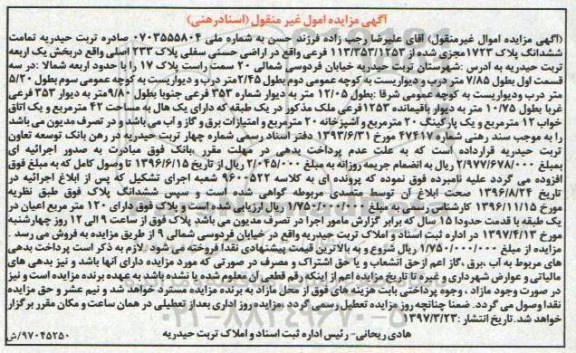 آگهی مزایده اموال غیر منقول (اسنادرهنی)
(آگهی مزایده اموال غیرمنقول) آقای علیرضا رجب زاده فرزند حسن به شماره ملی ۰۷۰۳۵۵۵۸۰۴ صادره تربت حیدریه تمامت
ششدانگ پلاک ۱۷۲۳ مجزی شده از ۱۱۳/۳۵۳/۱۲۵۳ فرعی واقع در اراضی حسنی سفلی پلاک ۲۳۳ اصلی واقع دربخش یک اربعه
تربت حیدریه به ادرس :شهرستان تربت حیدریه خیابان فردوسی شمالی ۲۰ سمت راست پلاک ۱۷ را با حدود اربعه شمالا :در سه
قسمت اول بطول ۷/۸۵ متر درب ودیواریست به کوچه عمومی دوم بطول ۲/۴۵متر درب ودیواریست به کوچه عمومی سوم بطول ۵/۲۰
متر درب ودیواریست به کوچه عمومی شرقا :بطول ۱۲/۰۵ متر به دیوار شماره ۳۵۳ فرعی جنوبا بطول ۹/۸۰متر به دیوار ۳۵۳ فرعی
غربا بطول ۱۰/۷۵ متر به دیوار باقیمانده ۱۲۵۳فرعی ملک مذکور در یک طبقه که دارای یک هال به مساحت ۴۲ مترمربع و یک اتاق
خواب ۱۲ مترمربع و یک پارکینگ ۲۰ مترمربع و آشپزخانه ۲۰ مترمربع و امتیازات برق و گاز و آب می باشد و در تصرف مدیون می باشد
را به موجب سند رهنی شماره ۴۷۴۱۷ مورخ ۱۳۹۳/۶/۳۱ دفتر اسناد رسمی شماره چهار تربت حیدریه در رهن بانک توسعه تعاون
تربت حیدریه قرارداده است که به علت عدم پرداخت بدهی در مهلت مقرر ،بانک فوق مبادرت به صدور اجرائیه ای
بمبلغ ۲/۹۷۷/۶۷۸/۰۰۰ ریال به انضمام جریمه روزانه به مبلغ ۲/۰۴۵/۰۰۰ ریال از تاریخ ۱۳۹۶/۶/۱۵ تا وصول کامل که به مبلغ فوق
افزوده می گردد علیه نامبرده فوق نموده که پرونده ای به کلاسه ۹۶۰۰۵۲۲ شعبه اجرای تشکیل که پس از ابلاغ اجرائیه در
تاریخ ۱۳۹۶/۸/۲۳ صحت ابلاغ آن توسط متصدی مربوطه گواهی شده است و سپس ششدانگ پلاک فوق طبق نظریه
مورخ ۱۳۹۶/۱۱/۱۵ کارشناس رسمی به مبلغ ۱/۷۵۰/۰۰۰/۰۰۰ ریال ارزیابی شده است و پلاک فوق دارای ۱۲۰ متر مربع اعیان در
یک طبقه با قدمت حدودا ۱۵ سال که برابر گزارش مامور اجرا در تصرف مدیون می باشد پلاک فوق از ساعت ۹ الی ۱۲ روز چهارشنبه
مورخ ۱۳۹۷/۴/۱۳ در اداره ثبت اسناد و املاک تربت حیدریه واقع در خیابان فردوسی شمالی ۹ از طریق مزایده به فروش می رسد .
مزایده از مبلغ ۱/۷۵۰/۰۰۰/۰۰۰ ریال شروع و به بالاترین قیمت پیشنهادی نقدا فروخته می شود. لازم به ذکر است پرداخت بدهی
های مربوط به آب ،برق ،گاز اعم ازحق انشعاب و یا حق اشتراک و مصرف در صورتی که مورد مزایده دارای آنها باشد و نیز بدهی های
مالیاتی و عوارض شهرداری و غیره تا تاریخ مزایده اعم از اینکه رقم قطعی آن معلوم شده یا نشده باشد به عهده برنده مزایده است و نیز
در صورت وجود مازاد ، وجوه پرداختی بابت هزینه های فوق از محل مازاد به برنده مزایده مسترد خواهد شد و نیم عشر و حق مزایده
نقدا وصول می گردد. ضمنا چنانچه روز مزایده تعطیل رسمی گردد ،مزایده روز اداری بعداز تعطیلی در همان ساعت و مکان مقرر برگزار
خواهد شد. تاریخ انتشار :۱۳۹۷/۳/۲۳
هادی ریحانی- رئیس اداره ثبت اسناد و املاک تربت حیدریه
۹۷۰۴۵۲۵۰/ش
۰۲۱-۸۸۳۴۹۶۷۰-۵